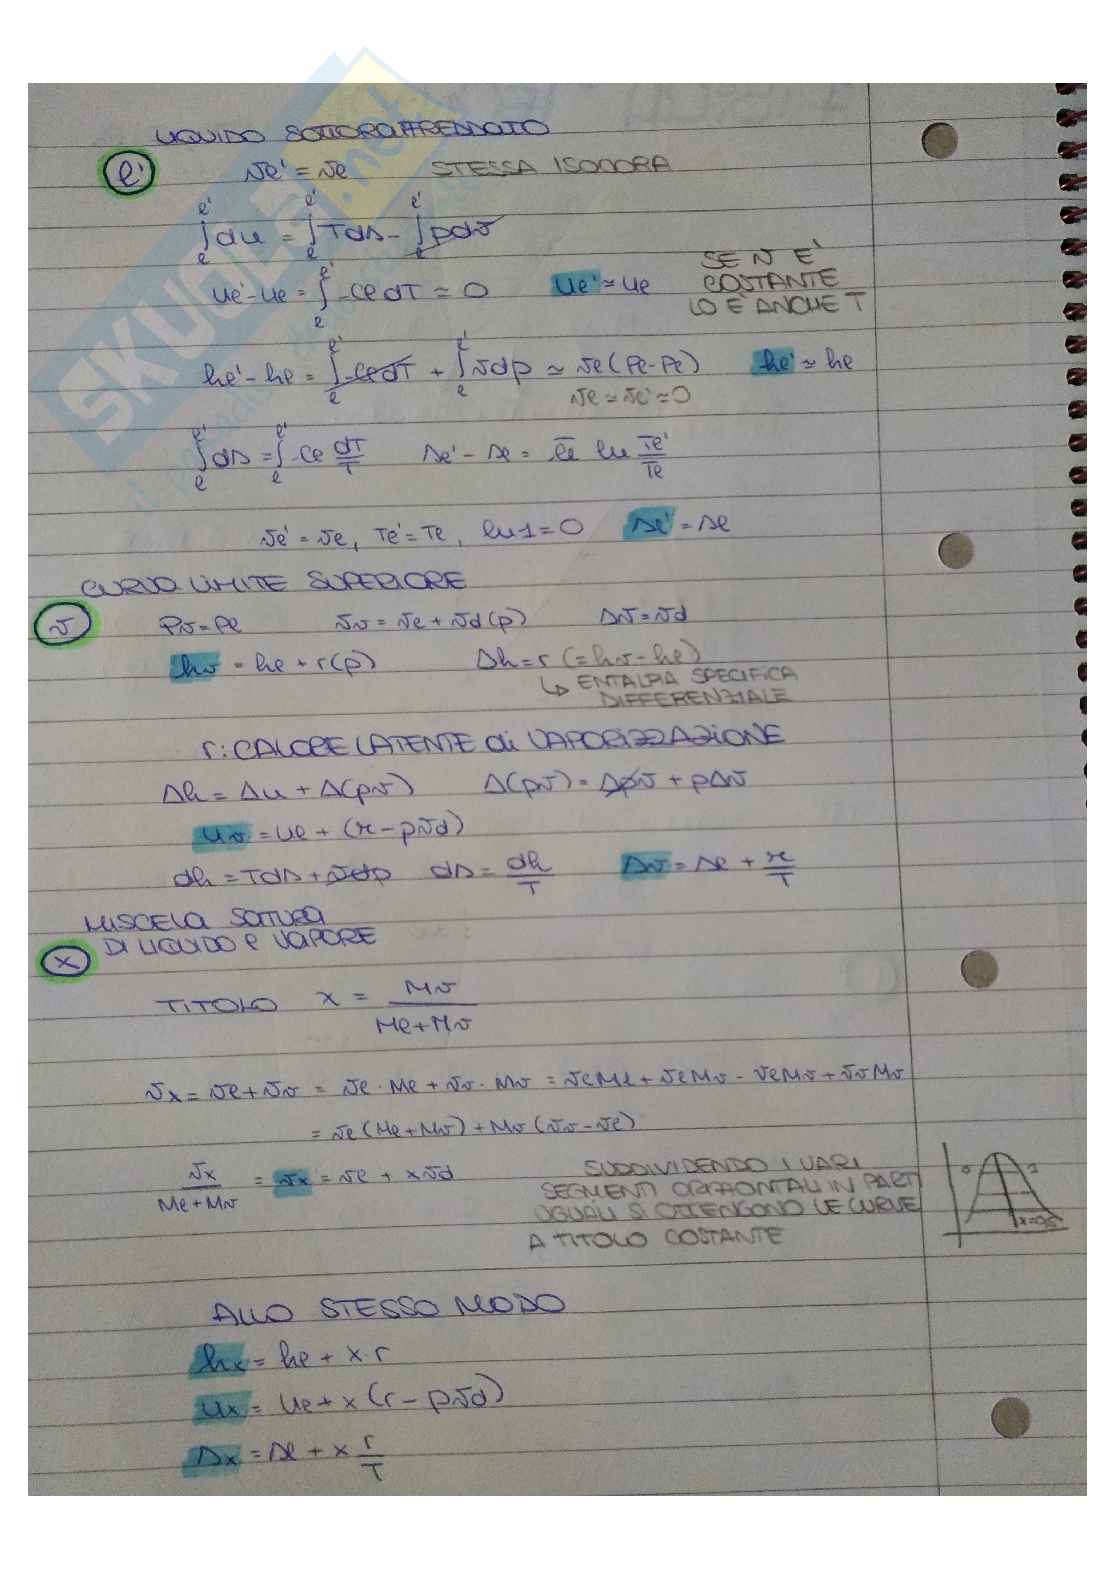 LIQUIDO SOTTORAFFREDDATO
l' vl' = vl STESSA ISOCORA
∫_l^l' du = ∫_l^l' Tds - ∫_l^l' pdv
ul' - ul = ∫_l^l' cl dT ≃ 0 ul' ≃ ul SE N È
COSTANTE
LO È ANCHE T
hl' - hl = ∫_l^l' cl dT + ∫_l^l' vdp ≃ vl (Pl - Pl) hl' ≃ hl
vl ≃ vl' ≃ 0
∫_l^l' ds = ∫_l^l' cl dT/T sl' - sl = c̅l ln Tl'/Tl
vl' = vl, Tl' = Tl, ln 1 = 0 sl' = sl
CURVA LIMITE SUPERIORE
v Pv = Pl vv = vl + vd (p) Δv = vd
hv = hl + r (p) Δh = r (= hv - hl)
↳ ENTALPIA SPECIFICA
DIFFERENZIALE
r: CALORE LATENTE di VAPORIZZAZIONE
Δh = Δu + Δ(pv) Δ(pv) = Δpv + pΔv
uv = ul + (r - pvd)
dh = Tds + vdp ds = dh/T sv = sl + r/T
MISCELA SATURA
DI LIQUIDO e VAPORE
x
TITOLO x = Mv/(Ml + Mv)
Vx = Vl + Vv = vl · Ml + vv · Mv = vl Ml + vl Mv - vl Mv + vv Mv
= vl (Ml + Mv) + Mv (vv - vl)
Vx/(Ml + Mv) = vx = vl + x vd SUDDIVIDENDO I VARI
SEGMENTI ORIZZONTALI IN PARTI
UGUALI SI OTTENGONO LE CURVE
A TITOLO COSTANTE
x=0,5
ALLO STESSO MODO
hx = hl + x · r
ux = ul + x (r - pvd)
sx = sl + x r/T